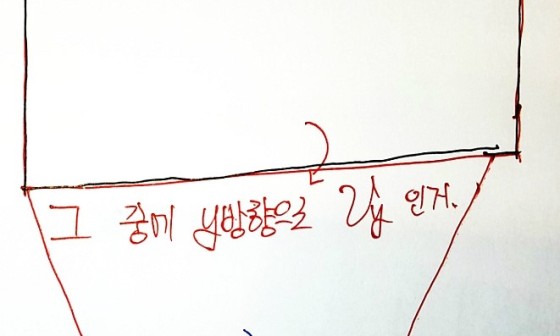 그 중에 y방향으로 2y 인거.